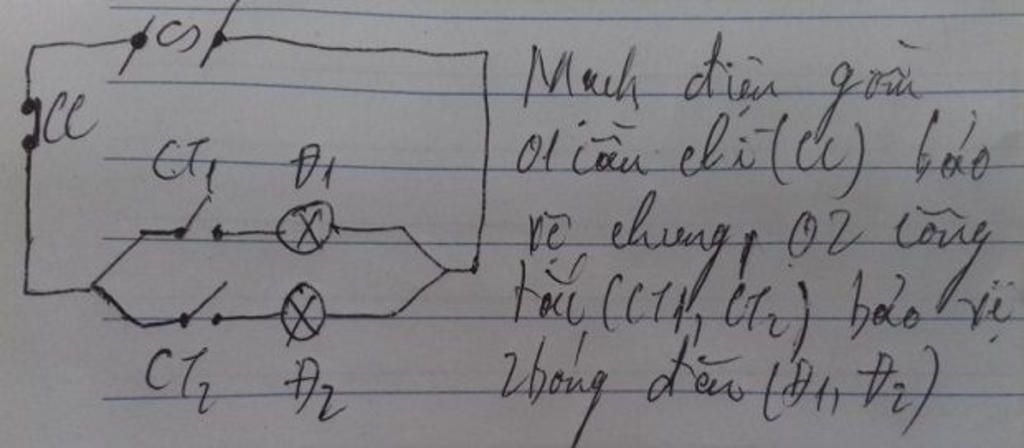 CS
CC
CT1 Đ1
CT2 Đ2
Mạch điện gồm
01 cầu chì (CC) bảo
vệ chung, 02 công
tắc (CT1, CT2) bảo vệ
2 bóng đèn (Đ1, Đ2)